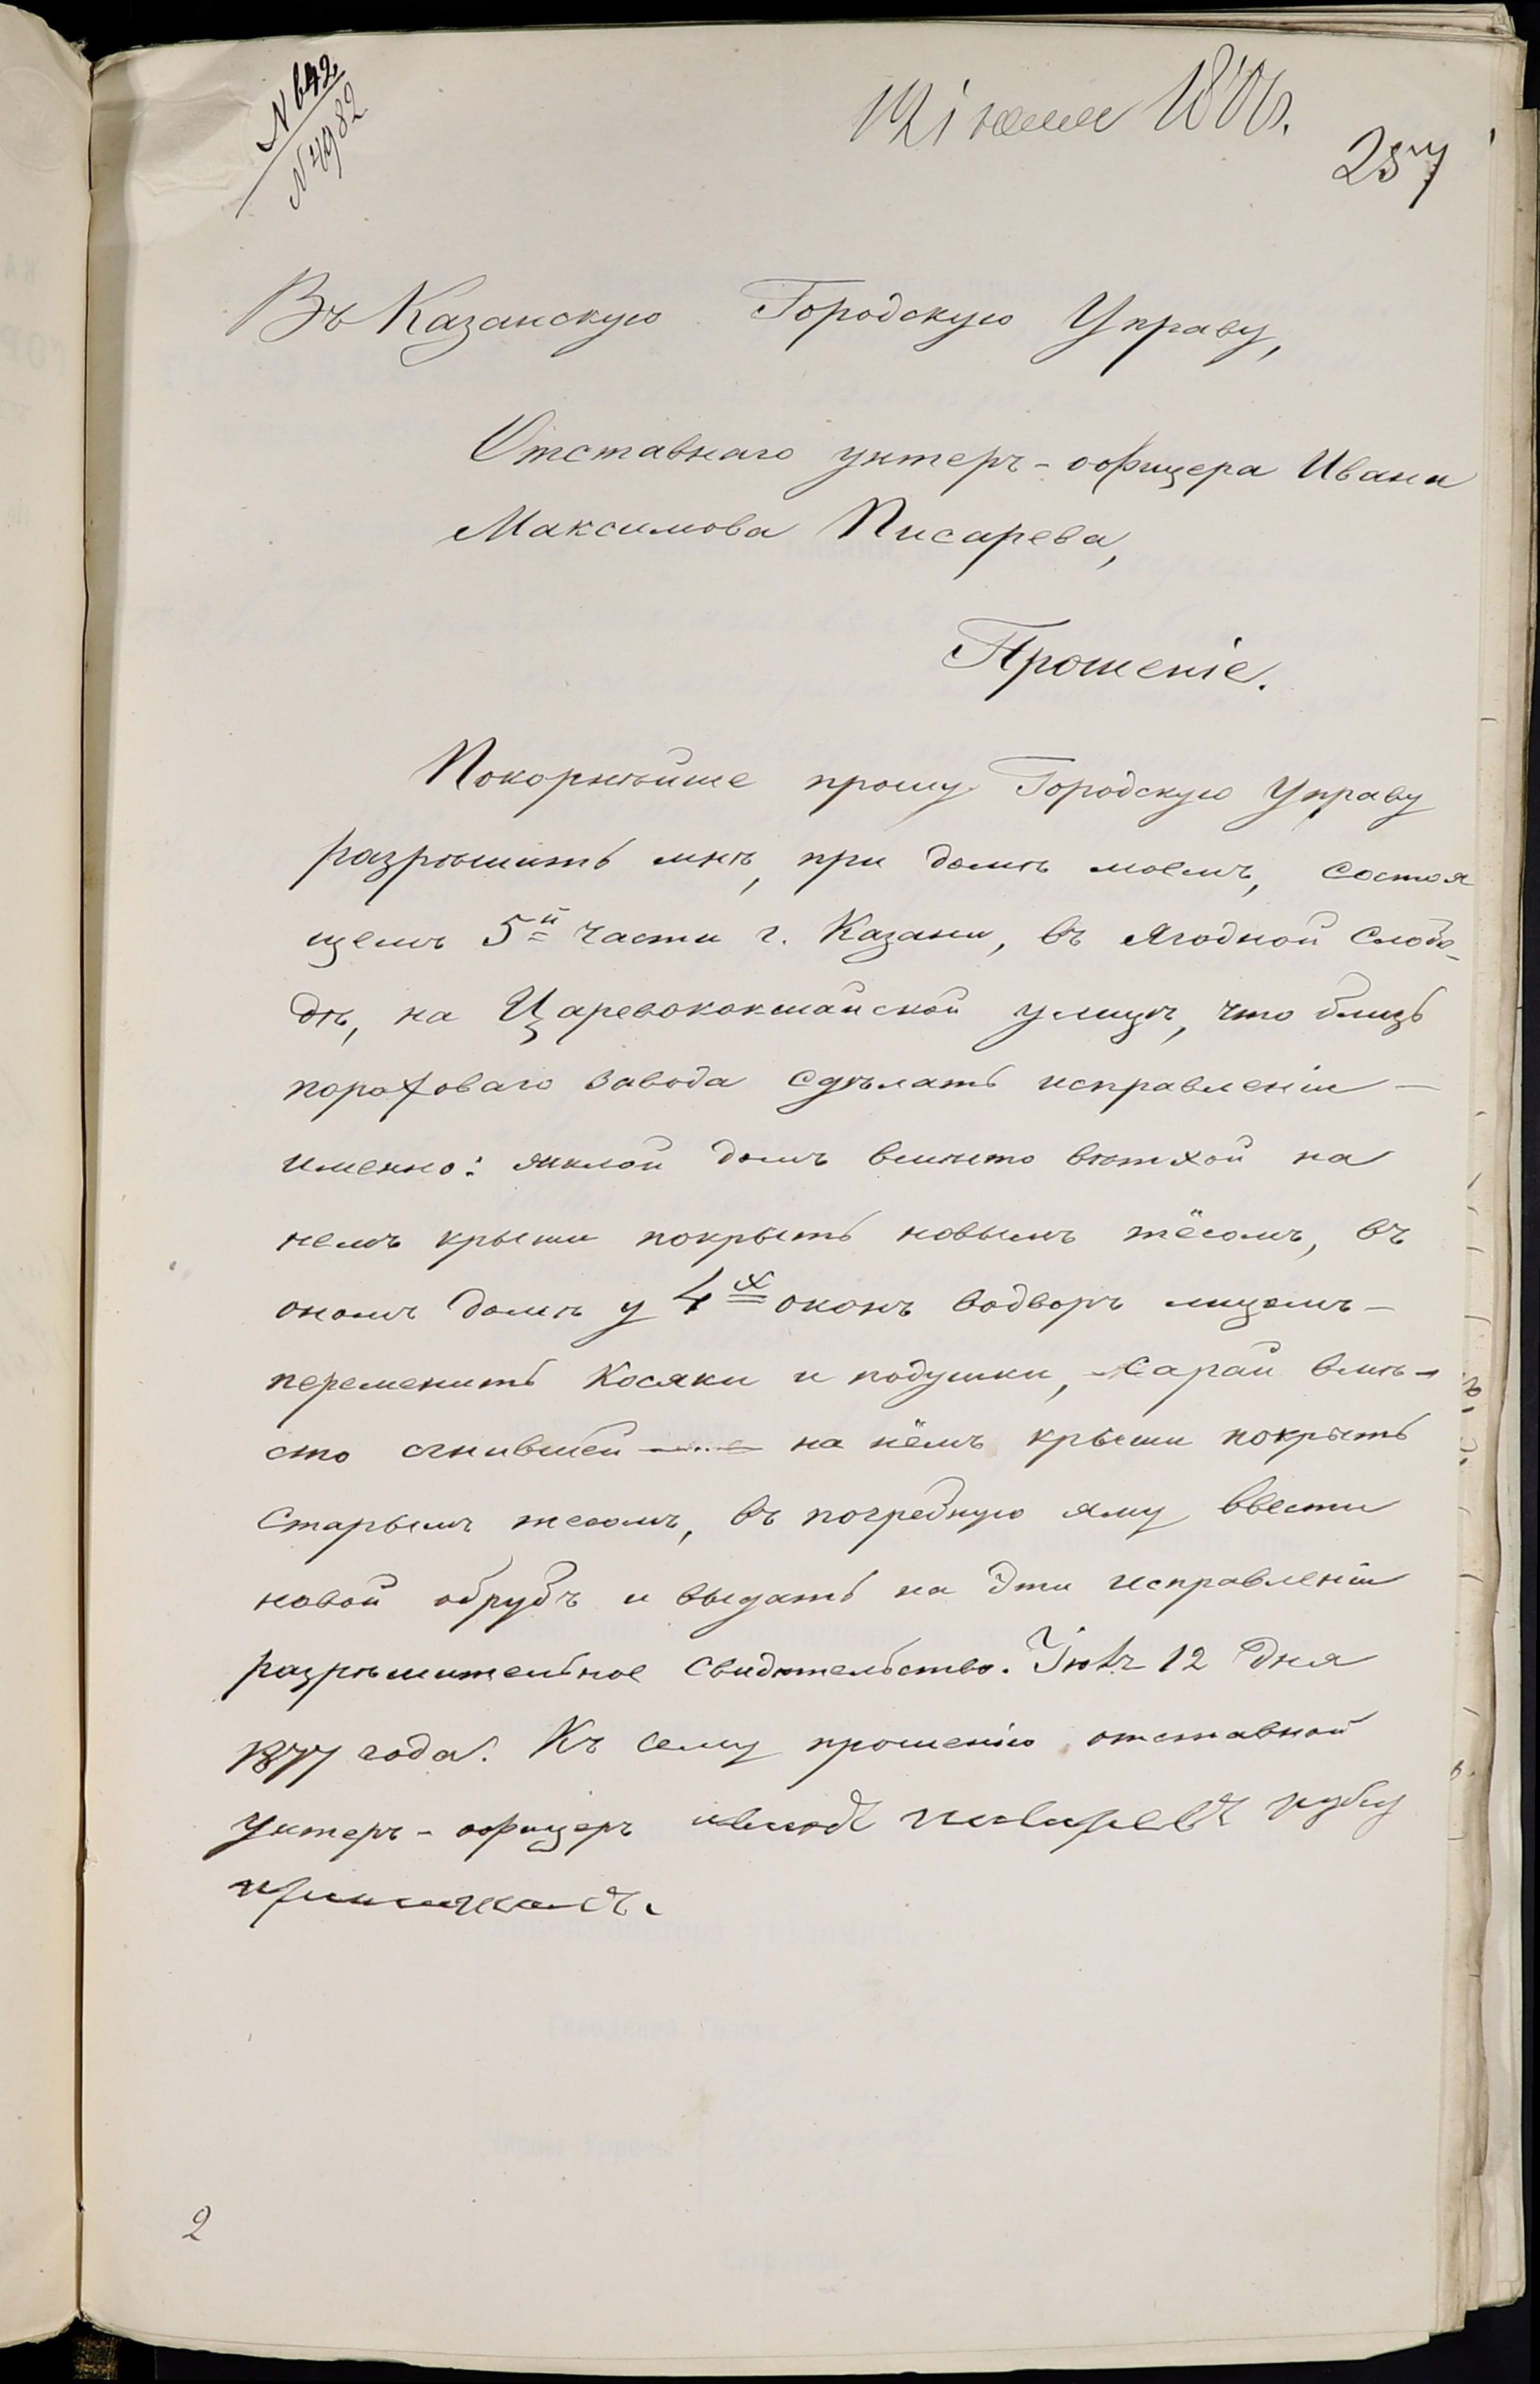 N 642
N 4982
12 іюня
257
Въ Казанскую Городскую Управу,
Отставнаго унтеръ-офицера Ивана
Максимова Писарева,
Прошеніе.
Покорнѣйше прошу Городскую Управу
разрѣшить мнѣ, при домѣ моемъ, состоя
щемъ 5й части г. Казани, въ Ягодной Слобо-
дѣ, на Царевококшайской улицѣ, что близь
пороховаго завода сдѣлать исправленіи —
именно: жилой домъ вмѣсто вѣтхой на
немъ крыши покрыть новымъ тёсомъ, въ
ономъ домѣ у 4х оконъ водворъ лицомъ —
переменить косяки и подушки, сарай вмѣ-
сто сгнившей на нёмъ крыши покрыть
старымъ тесомъ, въ погребную яму ввести
новой обрубъ и выдать на эти исправленіи
разрѣшительное свидѣтельство. 12 дня
1877 года. Къ сему прошенію отставной
унтеръ-офицеръ иванъ писаревъ руку
приложилъ.
2